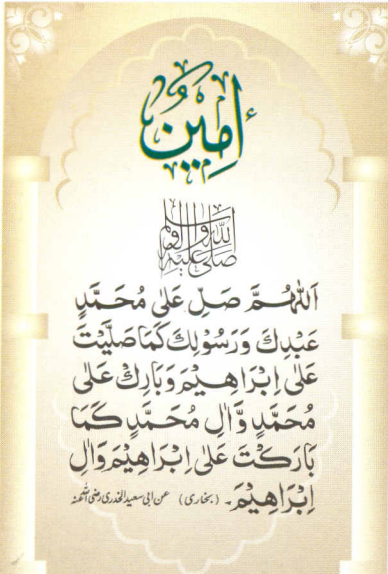 أَمِين
صلى الله عليه وآله وسلم
اَللّٰهُمَّ صَلِّ عَلٰى مُحَمَّدٍ
عَبْدِكَ وَرَسُوْلِكَ كَمَا صَلَّيْتَ
عَلٰى اِبْرَاهِيْمَ وَبَارِكْ عَلٰى
مُحَمَّدٍ وَّاٰلِ مُحَمَّدٍ كَمَا
بَارَكْتَ عَلٰى اِبْرَاهِيْمَ وَاٰلِ
اِبْرَاهِيْمَ۔ (بخاری) عن ابی سعید الخدری رضی اللہ عنہ